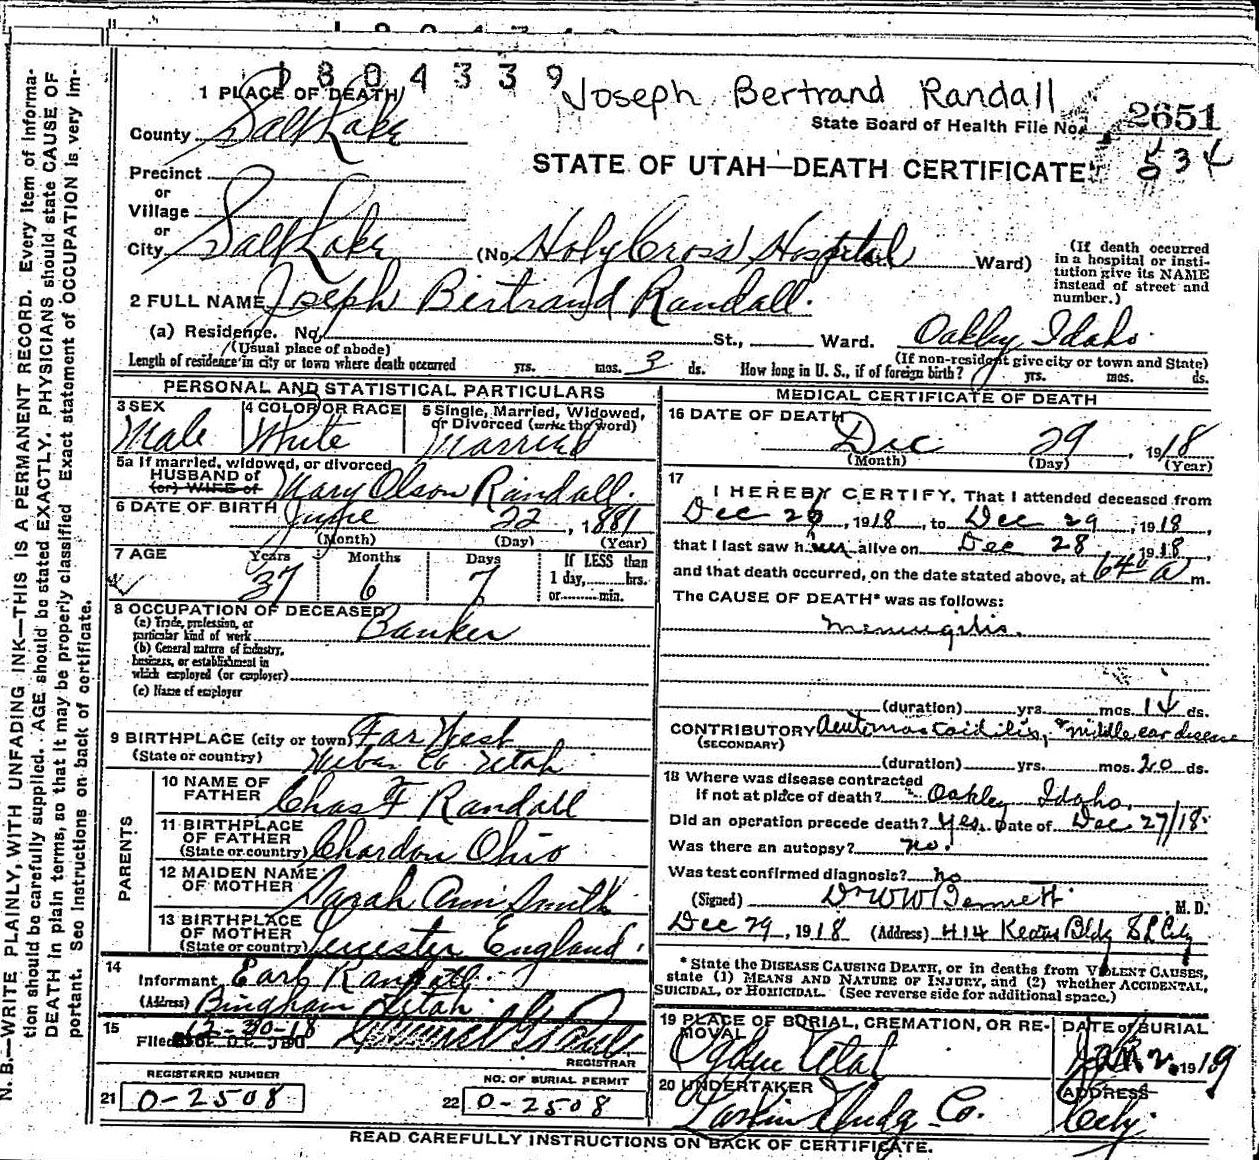 1804339
Joseph Bertrand Randall
1 PLACE OF DEATH
State Board of Health File No. 2651
534
County Salt Lake
STATE OF UTAH—DEATH CERTIFICATE
Precinct
or
Village
or
City Salt Lake (No Holy Cross Hospital Ward)
(If death occurred in a hospital or institution give its NAME instead of street and number.)
2 FULL NAME Joseph Bertrand Randall
(a) Residence. No. St., Ward. Oakley Idaho
(Usual place of abode) (If non-resident give city or town and State)
Length of residence in city or town where death occurred yrs. mos. 3 ds. How long in U. S., if of foreign birth? yrs. mos. ds.
PERSONAL AND STATISTICAL PARTICULARS
3 SEX Male
4 COLOR OR RACE White
5 Single, Married, Widowed, or Divorced (write the word) Married
5a If married, widowed, or divorced
HUSBAND of
(or) WIFE of Mary Olson Randall
6 DATE OF BIRTH June 22, 1881
(Month) (Day) (Year)
7 AGE Years 37 Months 6 Days 7
If LESS than
1 day, hrs.
or min.
8 OCCUPATION OF DECEASED
(a) Trade, profession, or
particular kind of work Banker
(b) General nature of industry,
business, or establishment in
which employed (or employer)
(c) Name of employer
9 BIRTHPLACE (city or town) Far West
(State or country) Weber Co Utah
PARENTS
10 NAME OF
FATHER Chas F Randall
11 BIRTHPLACE
OF FATHER
(State or country) Chardon Ohio
12 MAIDEN NAME
OF MOTHER Sarah Ann Smith
13 BIRTHPLACE
OF MOTHER
(State or country) Leicester England
14
Informant Earl Randall
(Address) Bingham Utah
15
Filed 12-30-18
REGISTRAR
REGISTERED NUMBER
21 0-2508
NO. OF BURIAL PERMIT
22 0-2508
MEDICAL CERTIFICATE OF DEATH
16 DATE OF DEATH
Dec 29, 1918
(Month) (Day) (Year)
17
I HEREBY CERTIFY, That I attended deceased from
Dec 26, 1918, to Dec 29, 1918,
that I last saw him alive on Dec 28 1918,
and that death occurred, on the date stated above, at 640 a m.
The CAUSE OF DEATH* was as follows:
Meningitis.
(duration) yrs. mos. 14 ds.
CONTRIBUTORY Acute mastoiditis, & middle ear disease
(SECONDARY)
(duration) yrs. mos. 20 ds.
18 Where was disease contracted
if not at place of death? Oakley Idaho.
Did an operation precede death? Yes. Date of Dec 27/18.
Was there an autopsy? no.
Was test confirmed diagnosis? no
(Signed) Dr WW Bennett M. D.
Dec 29, 1918 (Address) 414 Kearns Bldg S L City
* State the DISEASE CAUSING DEATH, or in deaths from VIOLENT CAUSES,
state (1) MEANS AND NATURE OF INJURY, and (2) whether ACCIDENTAL,
SUICIDAL, OR HOMICIDAL. (See reverse side for additional space.)
19 PLACE OF BURIAL, CREMATION, OR RE-
MOVAL
Ogden Utah
DATE of BURIAL
Jan 2. 1919
20 UNDERTAKER
Larkin Undg Co.
ADDRESS
City.
READ CAREFULLY INSTRUCTIONS ON BACK OF CERTIFICATE.
N. B.—WRITE PLAINLY, WITH UNFADING INK—THIS IS A PERMANENT RECORD. Every item of informa-
tion should be carefully supplied. AGE should be stated EXACTLY. PHYSICIANS should state CAUSE OF
DEATH in plain terms, so that it may be properly classified. Exact statement of OCCUPATION is very im-
portant. See instructions on back of certificate.